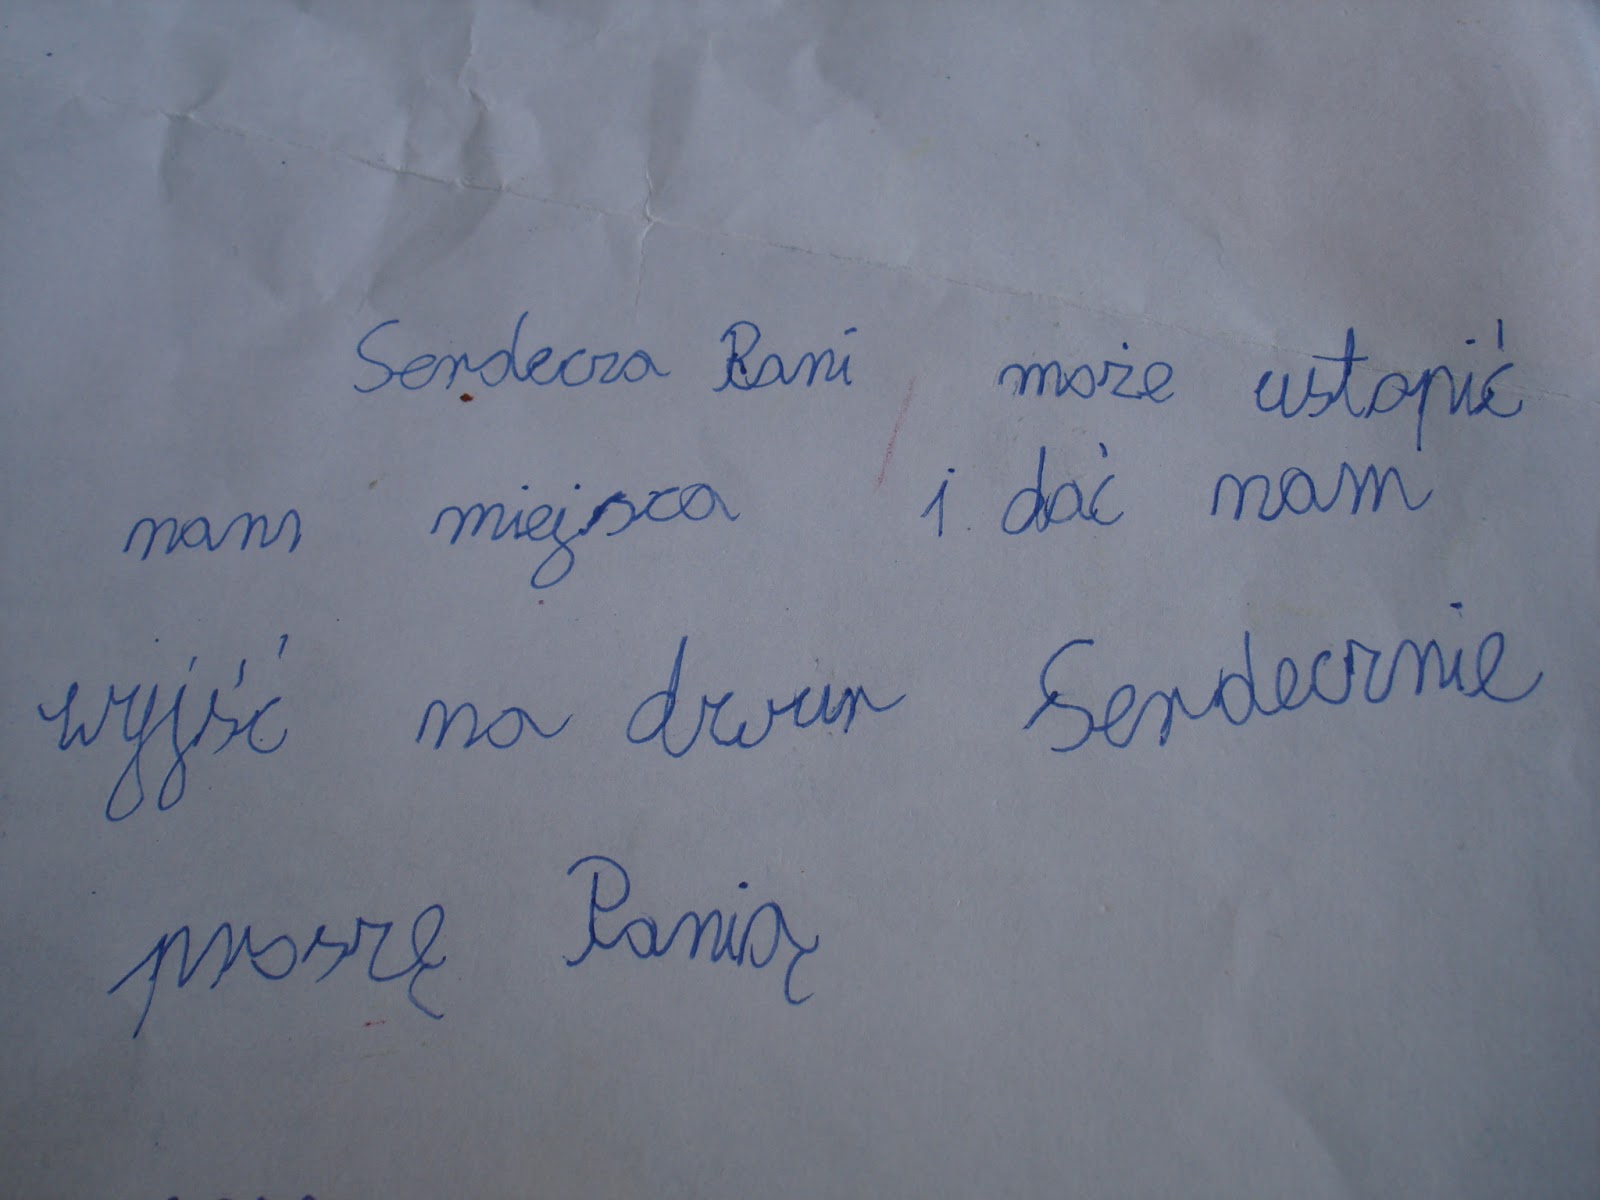 Serdecza Pani może ustopić
nam miejsca i dać nam
wyjść na dwur Serdecznie
proszę Panią